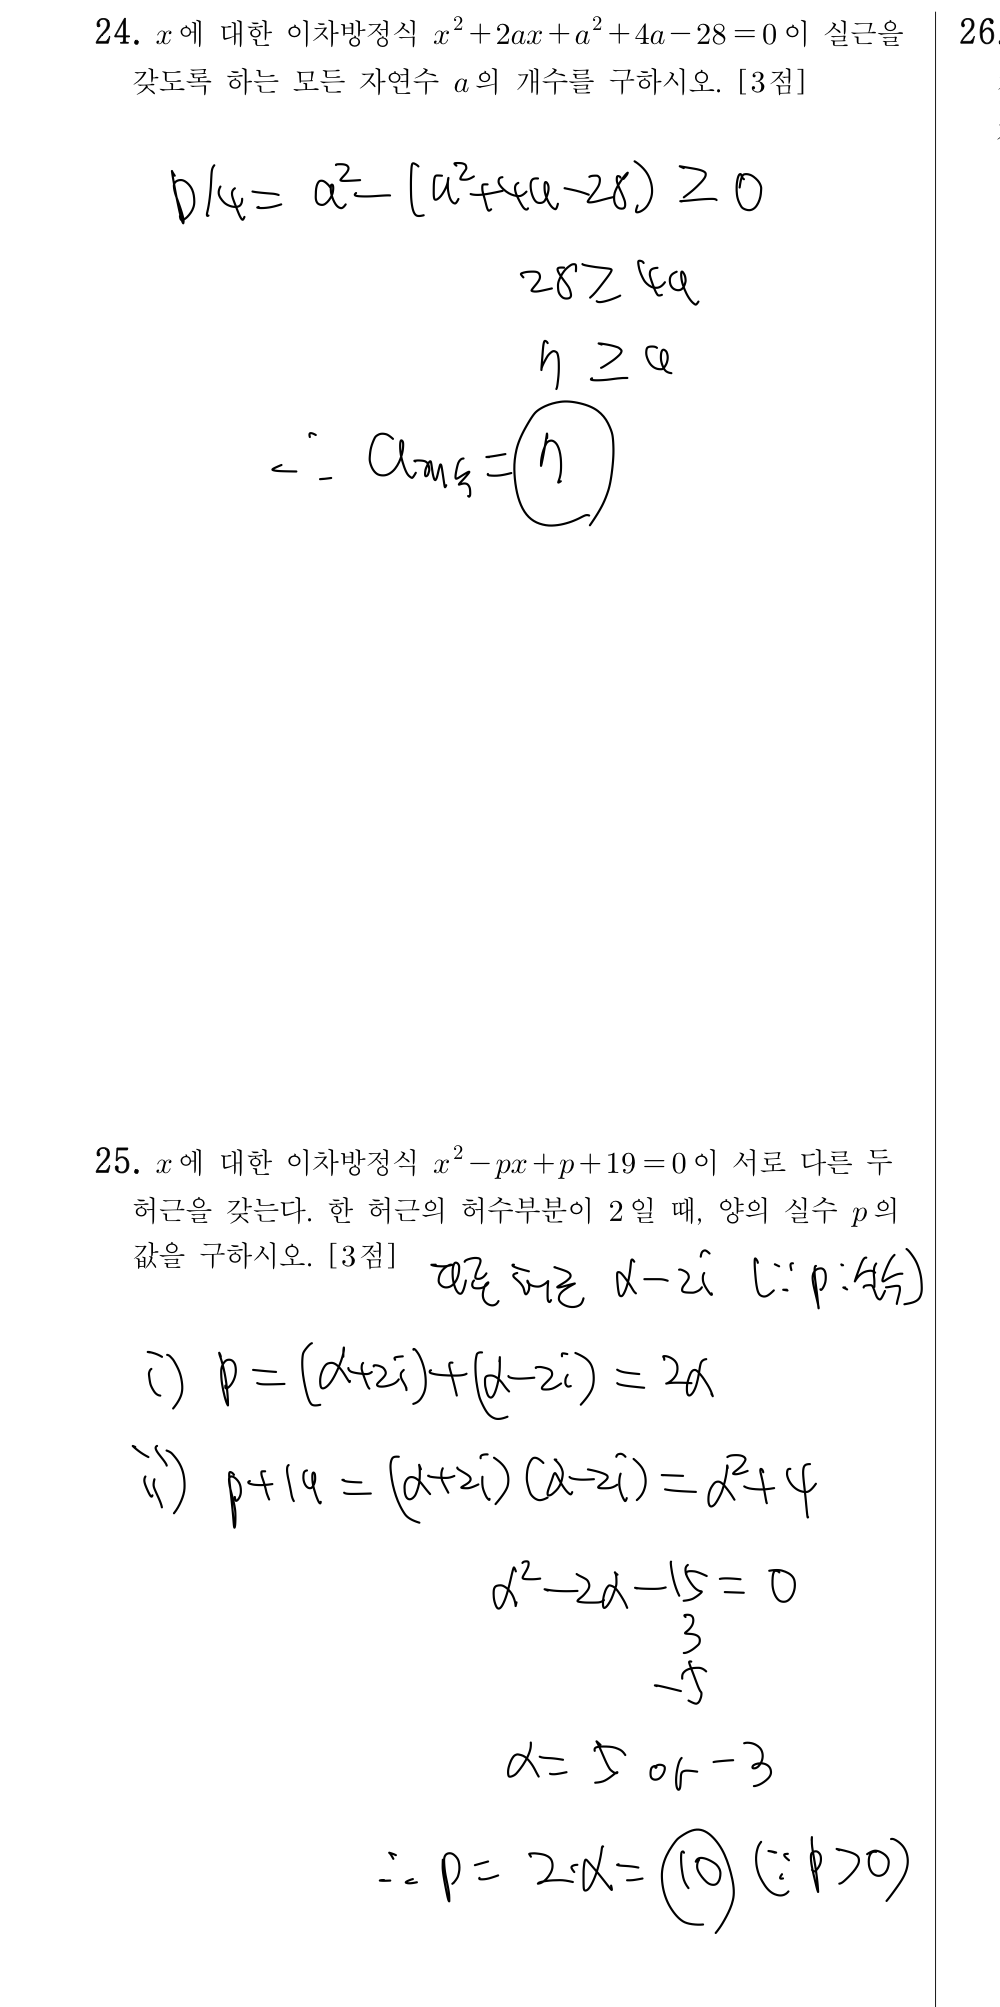 24. x에 대한 이차방정식 x²+2ax+a²+4a-28=0이 실근을
갖도록 하는 모든 자연수 a의 개수를 구하시오. [3점]
D/4 = a²-(a²+4a-28) ≥ 0
28 ≥ 4a
7 ≥ a
∴ a = 7
25. x에 대한 이차방정식 x²-px+p+19=0이 서로 다른 두
허근을 갖는다. 한 허근의 허수부분이 2일 때, 양의 실수 p의
값을 구하시오. [3점]
다른 허근 α-2i (∵ p:실수)
i) p = (α+2i)+(α-2i) = 2α
ii) p+19 = (α+2i)(α-2i) = α²+4
α²-2α-15 = 0
3
-5
α = 5 or -3
∴ p = 2·α = 10 (∵ p>0)
26.